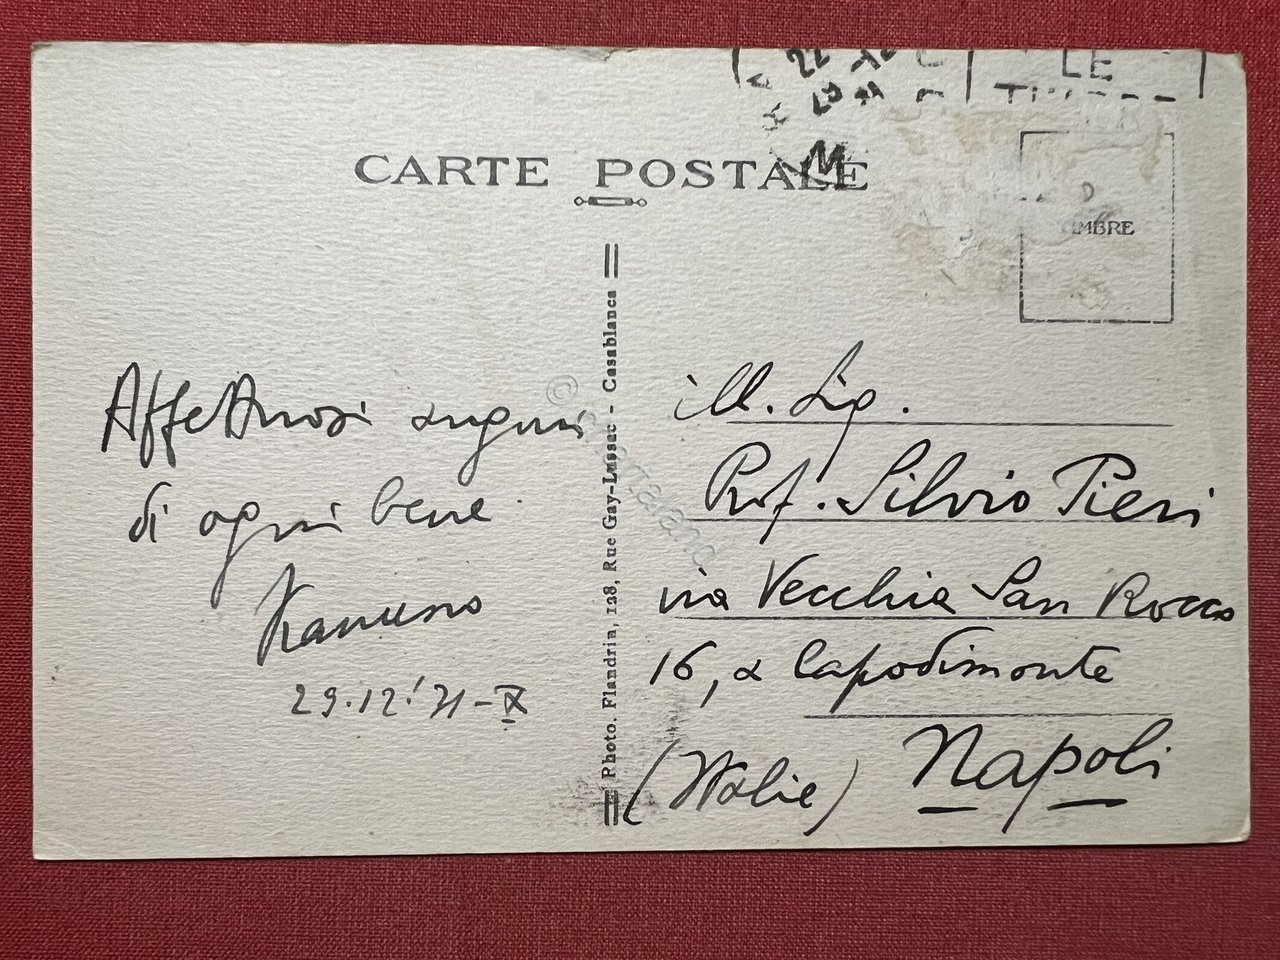 22 12
LE
CARTE POSTALE
TIMBRE
Photo. Flandrin, 128, Rue Gay-Lussac - Casablanca
Affettuosi auguri
di ogni bene
29.12.'31-X
ill. Sig.
Prof. Silvio Pieri
via Vecchia San Rocco
16, a Capodimonte
Napoli
(Italie)